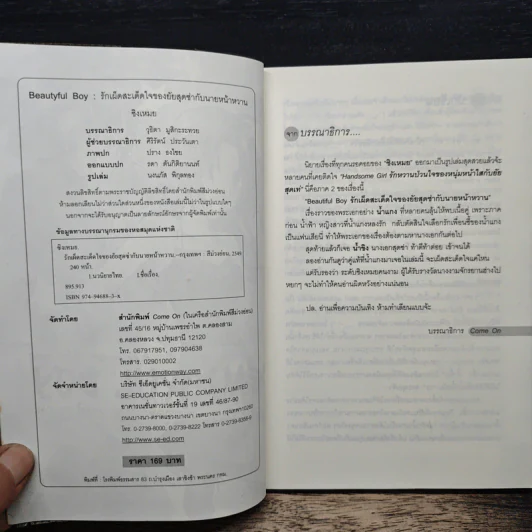 Beautyful Boy : รักเผ็ดสะเด็ดใจของยัยสุดซ่ากับนายหน้าหวาน
ชิงเหมย
บรรณาธิการ วุธิตา มูสิกะระทวย
ผู้ช่วยบรรณาธิการ ศิริรัตน์ ประวันเตา
ภาพปก ปราง ธงไชย
ออกแบบปก รดา ตันกิติยานนท์
รูปเล่ม นงนภัส พิกุลทอง
สงวนลิขสิทธิ์ตามพระราชบัญญัติลิขสิทธิ์โดยสำนักพิมพ์สีม่วงอ่อน
ห้ามลอกเลียนไม่ว่าส่วนใดส่วนหนึ่งของหนังสือเล่มนี้ไม่ว่าในรูปแบบใดๆ
นอกจากจะได้รับอนุญาตเป็นลายลักษณ์อักษรจากผู้จัดพิมพ์เท่านั้น
ข้อมูลทางบรรณานุกรมของหอสมุดแห่งชาติ
ชิงเหมย.
รักเผ็ดสะเด็ดใจของยัยสุดซ่ากับนายหน้าหวาน.--กรุงเทพฯ : สีม่วงอ่อน, 2549.
240 หน้า.
1.นวนิยายไทย I.ชื่อเรื่อง.
895.913
ISBN 974-94689-3-x
จัดทำโดย สำนักพิมพ์ Come On (ในเครือสำนักพิมพ์สีม่วงอ่อน)
เลขที่ 45/16 หมู่บ้านเพชรอำไพ ต.คลองสาม
อ.คลองหลวง จ.ปทุมธานี 12120
โทร. 067917951, 097904638
โทรสาร. 029010002
http://www.emotionway.com
จัดจำหน่ายโดย บริษัท ซีเอ็ดยูเคชั่น จำกัด(มหาชน)
SE-EDUCATION PUBLIC COMPANY LIMITED
อาคารเนชั่นทาวเวอร์ชั้นที่ 19 เลขที่ 46/87-90
ถนนบางนา-ตราด แขวงบางนา เขตบางนา กรุงเทพฯ
โทร 0-2739-8000, 0-2739-8222 โทรสาร
http://www.se-ed.com
ราคา 169 บาท
พิมพ์ที่ :
จาก บรรณาธิการ....
นิยายเรื่องที่ทุกคนรอคอยของ ชิงเหมย ออกมาเป็นรูปเล่มสุดสวยแล้วจ้ะ
หลายคนที่เคยติดใจ "Handsome Girl รักหวานป่วนใจของหนุ่มหน้าใสกับยัย
สุดเท่" นี่คือภาค 2 ของเรื่องนี้
"Beautyful Boy รักเผ็ดสะเด็ดใจของยัยสุดซ่ากับนายหน้าหวาน"
เรื่องราวของพระเอกอย่าง น้ำแกง ที่หลายคนลุ้นให้พบเนื้อคู่ เพราะภาค
ก่อน น้ำฟ้า หญิงสาวที่น้ำแกงหลงรัก กลับตัดสินใจเลือกรักเพื่อนซี้ของน้ำแกง
เป็นแฟนเสียนี่ ทำให้พระเอกของเรื่องต้องตามหานางเอกกันต่อไป
สุดท้ายแล้วก็เจอ น้ำขิง นางเอกสุดซ่า ท้าตีท้าต่อย เข้าจนได้
ลองอ่านกันดูว่าคู่แท้ที่น้ำแกงมาเจอในเล่มนี้ จะเผ็ดสะเด็ดใจแค่ไหน
แต่รับรองว่า ระดับชิงเหมยคนงาม ผู้ได้รับรางวัลนางงามจักรยานล้างไป
หยกๆ จะไม่ทำให้คนอ่านผิดหวังอย่างแน่นอน
ปล. อ่านเพื่อความบันเทิง ห้ามทำเลียนแบบจ้ะ
บรรณาธิการ Come On